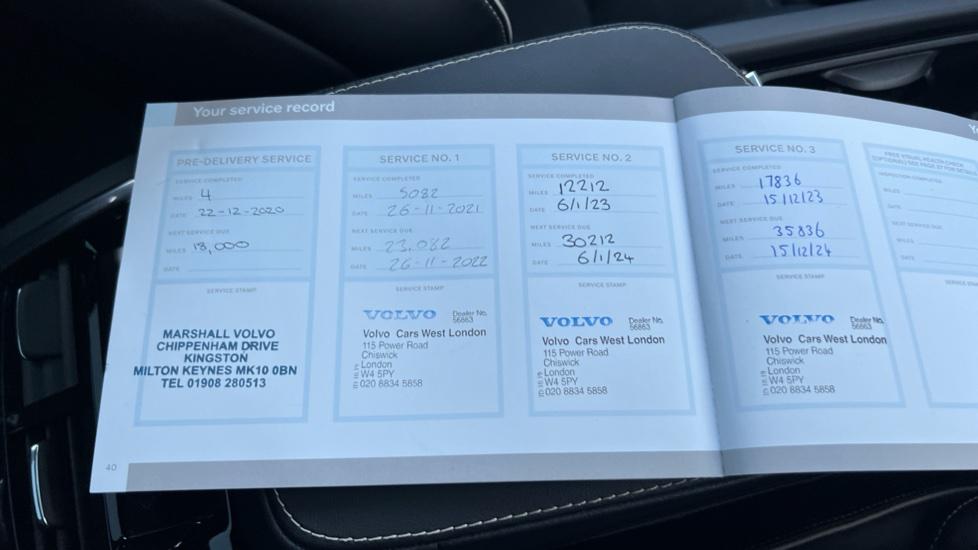 Your service record
PRE-DELIVERY SERVICE
SERVICE COMPLETED
MILES 4
DATE 22-12-2020
NEXT SERVICE DUE
MILES 18,000
DATE
SERVICE STAMP
MARSHALL VOLVO
CHIPPENHAM DRIVE
KINGSTON
MILTON KEYNES MK10 0BN
TEL 01908 280513
SERVICE NO. 1
SERVICE COMPLETED
MILES 5082
DATE 26-11-2021
NEXT SERVICE DUE
MILES 23,082
DATE 26-11-2022
SERVICE STAMP
VOLVO Dealer No.
56863
Volvo Cars West London
115 Power Road
Chiswick
London
W4 5PY
020 8834 5858
SERVICE NO. 2
SERVICE COMPLETED
MILES 12212
DATE 6/1/23
NEXT SERVICE DUE
MILES 30212
DATE 6/1/24
SERVICE STAMP
VOLVO Dealer No.
56863
Volvo Cars West London
115 Power Road
Chiswick
London
W4 5PY
020 8834 5858
SERVICE NO. 3
SERVICE COMPLETED
MILES 17836
DATE 15/12/23
NEXT SERVICE DUE
MILES 35836
DATE 15/12/24
SERVICE STAMP
VOLVO Dealer No.
56863
Volvo Cars West London
115 Power Road
Chiswick
London
W4 5PY
020 8834 5858
FREE VISUAL HEALTH CHECK
(OPTIONAL) SEE PAGE 37 FOR DETAILS
INSPECTION COMPLETED
MILES
DATE
NEXT SERVICE DUE
MILES
DATE
40